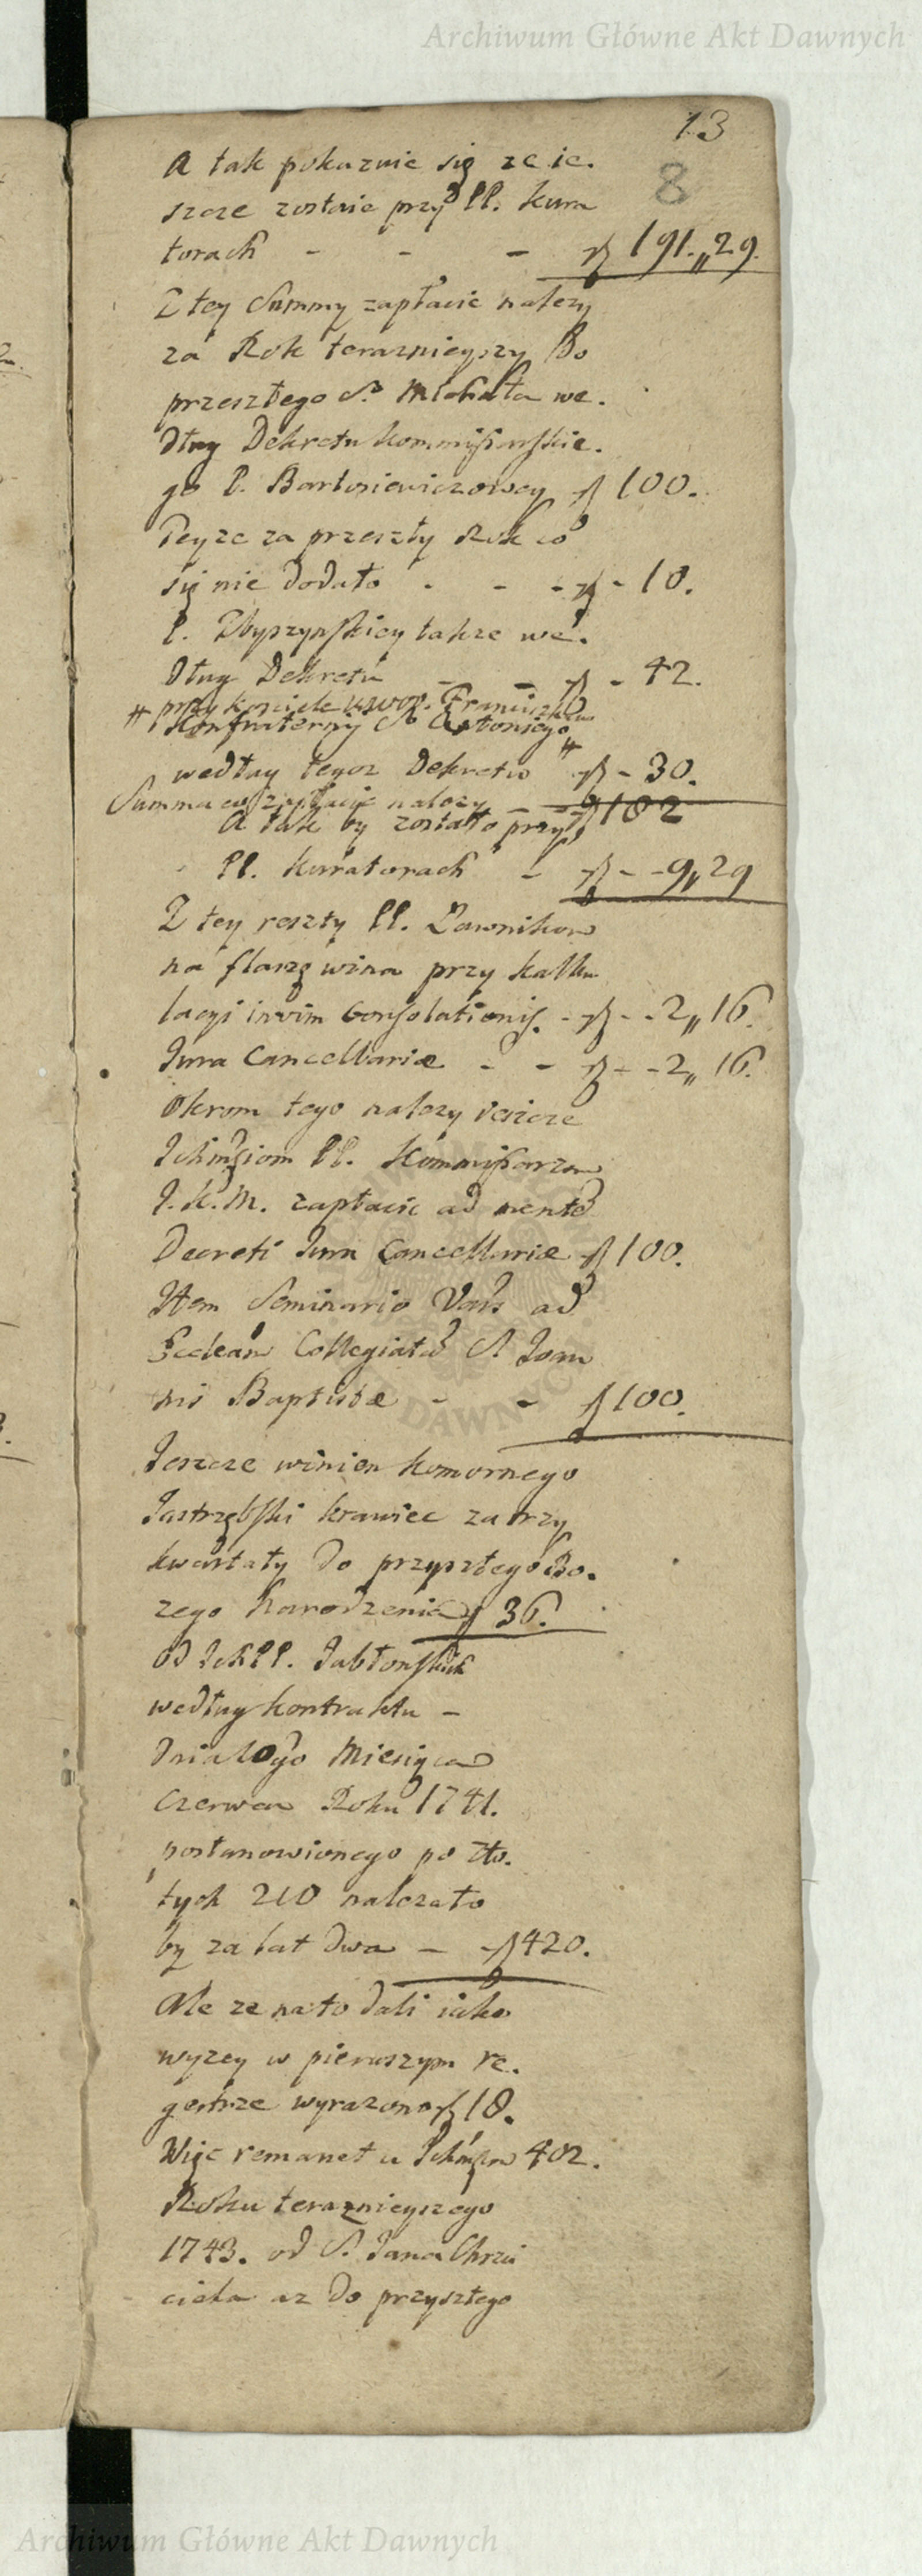 Archiwum Główne Akt Dawnych
13
8
A tak pokazuie się ze ie.
szcze zostaie przy PP. Kura
torach - - - f 191.„29.
Z tey Summy zapłacić nalezy
za Rok teraznieyszy Do
przeszłego S. Michała we.
dług Dekretu Kommissarskie.
go P. Bartosiewiczowey f 100.
Teyze za przeszły Rok co
się nie dodało - - - f - 10.
P. Zbyszynskiey takze we.
dług Dekretu - - f - 42.
# przy kosciele Franciszkanow
Konfraternij S. Antoniego #
według tegoz Dekretu f - 30.
Summa co zapłacić nalezy - - f 182
A tak by zostało przy
PP. Kuratorach - f - - 9„29
Z tey reszty PP. Ławnikow
na flaszę wina przy kalku
lacyi in vim Consolationis. - f - - 2„16.
Jura Cancellariæ - - f - - 2„16.
Okrom tego nalezy ieszcze
Ichmsciom PP. Kommissarzom
J.K.M. zapłacic ad mente
Decreti Jura Cancellariæ f 100.
Item Seminario Vars ad
Eccleam Collegiata S. Joan
nis Baptistæ - - f 100.
Jeszcze winien komornego
Jastrzębski krawiec za trzy
kwartały do przyszłego Bo.
zego Narodzenia f 36.
Od Ich PP. Jabłonskich
według kontraktu -
dnia 10go Miesiąca
Czerwca Roku 1741.
postanowionego po zło.
tych 210 nalezało
by za lat dwa - f 420.
Ale ze na to dali iako
wyzey w pierwszym re.
gestrze wyrazono f 18.
Więc remanet u Ichmsciow 402.
Roku teraznieyszego
1743. od S. Jana Chrzci
ciela az do przyszłego
Archiwum Główne Akt Dawnych